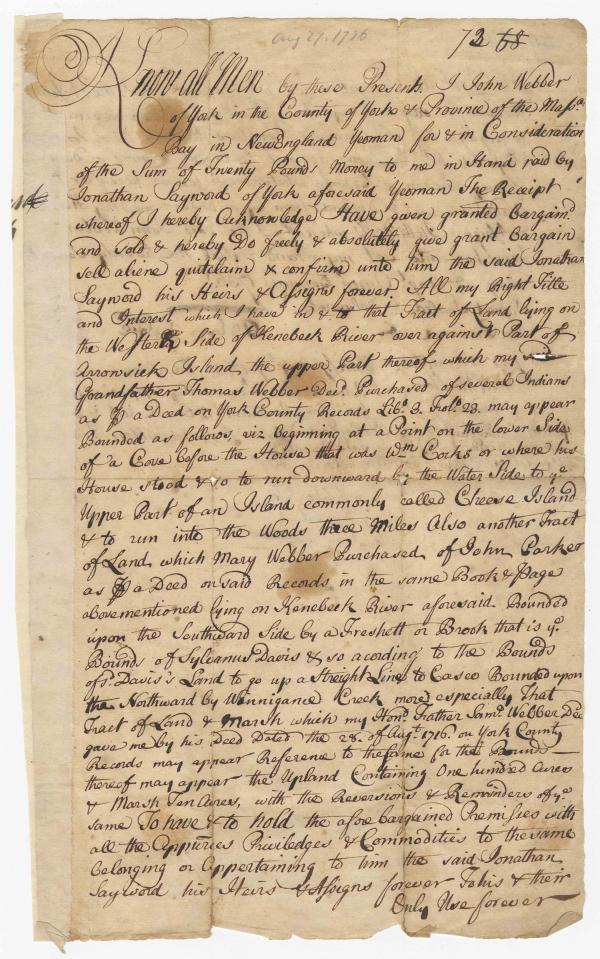 Aug 27. 1726
73 68
Know all Men by these Presents. I John Webber
of York in the County of York & Province of the Massa
Bay in NewEngland Yeoman for & in Consideration
of the Sum of Twenty Pounds Money to me in Hand paid by
Jonathan Sayword of York aforesaid Yeoman The Receipt
whereof I hereby Acknowledge Have given granted Bargaind
and Sold & hereby Do freely & absolutely give grant Bargain
sell aliene quitclaim & confirm unto him the said Jonathan
Sayword his Heirs & Assigns forever. All my Right Title
and Interest which I have in & to that Tract of Land lying on
the Western Side of Kenebeck River over against Part of
Arrowsick Island, the upper Part thereof which my
Grandfather Thomas Webber Decd. Purchased of several Indians
as ⅌ a Deed on York County Records Libo. 3. Folo. 23. may appear
Bounded as follows, viz beginning at a Point on the lower Side
of a Cove before the House that was Wm Cocks or where his
House stood & so to run downward by the Water Side to ye
Upper Part of an Island commonly called Cheese Island
& to run into the Woods three Miles Also another Tract
of Land which Mary Webber Purchased of John Parker
as ⅌ a Deed on said Records in the same Book & Page
abovementioned lying on Kenebeck River aforesaid Bounded
upon the Southward Side by a Freshett or Brook that is ye
Bounds of Sylvanus Davis & so acording to the Bounds
of sd. Davis's Land to go up a Streight Line to Casco Bounded upon
the Northward by Winnigance Creek more especially That
Tract of Land & Marsh which my Hond. Father Saml. Webber Decd
gave me by his Deed Dated the 28. of Augt. 1716. on York County
Records may appear Reference to the same for the Bounds
thereof may appear the Upland Containing One hundred Acres
& Marsh Ten Acres, with the Reversions & Remainders of ye
same To have & to hold the afore bargained Premisses with
all the Appurces Priviledges & Commodities to the same
belonging or Appertaining to him the said Jonathan
Sayword his Heirs & Assigns forever To his & their
Only Use forever